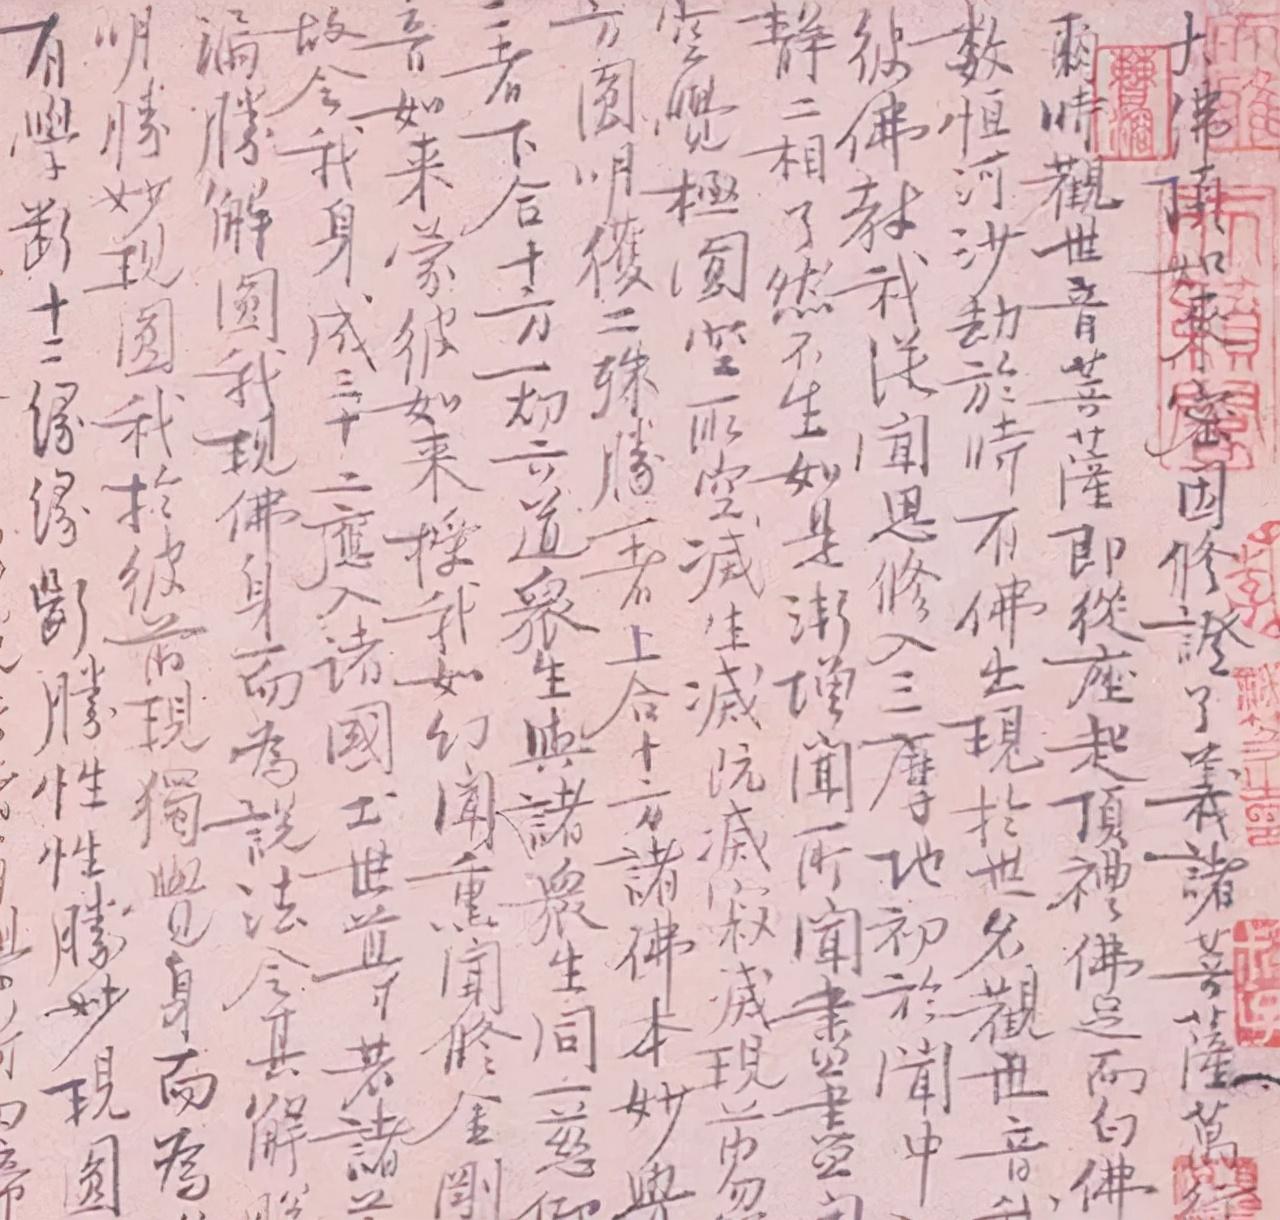 大佛頂如來密因修證了義諸菩薩萬行
爾時觀世音菩薩即從座起頂禮佛足而白佛
數恒河沙劫於時有佛出現於世名觀世音我
彼佛教我從聞思修入三摩地初於聞中
靜二相了然不生如是漸增聞所聞盡盡聞
空覺極圓空所空滅生滅既滅寂滅現前忽
方圓明獲二殊勝一者上合十方諸佛本妙覺
二者下合十方一切六道眾生與諸眾生同一悲仰
音如来蒙彼如来授我如幻聞熏聞修金剛
故令我身成三十二應入諸國土世尊若諸菩
漏勝解圓我現佛身而為說法令其解脫
明勝妙現圓我於彼前現獨覺身而為
有學斷十二緣緣斷勝性性勝妙現圓